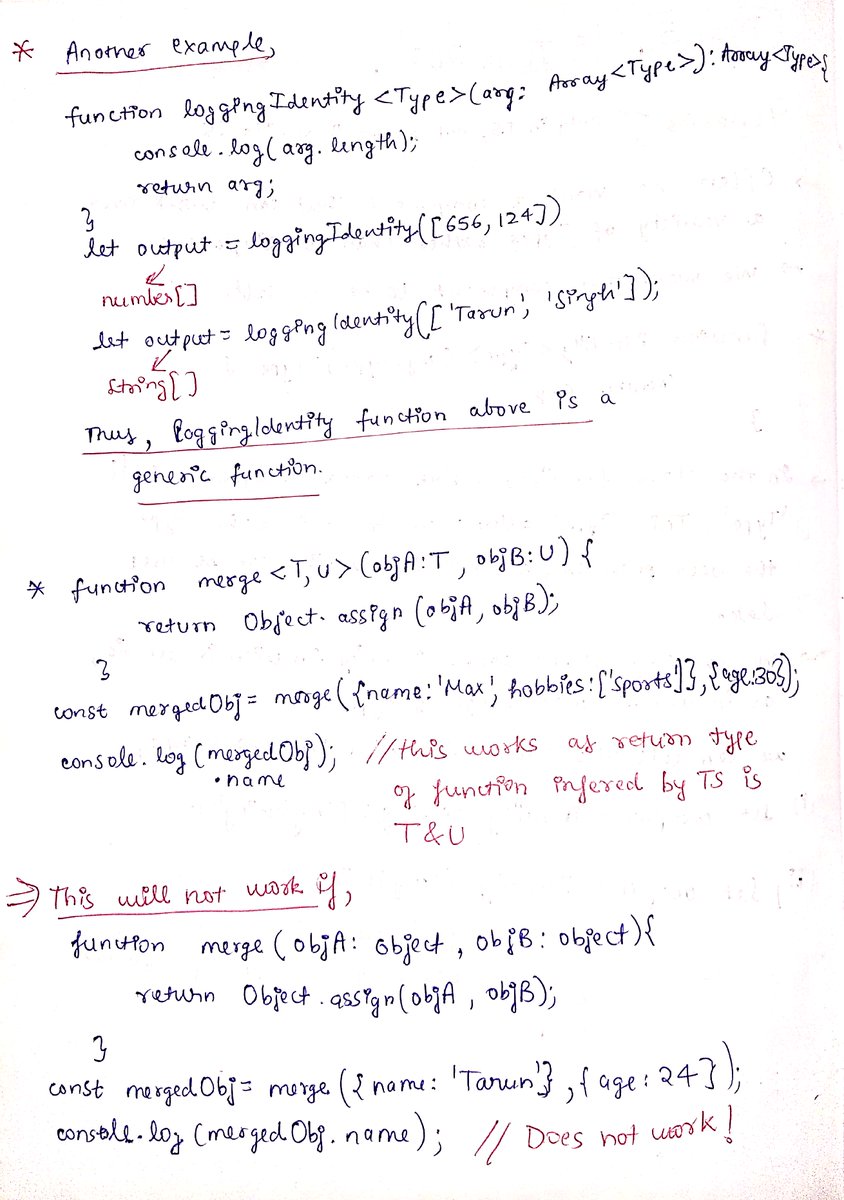 * Another example,
function loggingIdentity <Type>(arg: Array<Type>): Array<Type>{
console.log(arg.length);
return arg;
}
let output = loggingIdentity([656, 124])
number[]
let output = loggingIdentity(['Tarun', 'Singh']);
string[]
Thus, loggingIdentity function above is a
generic function.
* function merge <T, U> (objA: T , objB: U) {
return Object.assign (objA, objB);
}
const mergedObj = merge({name: 'Max', hobbies: ['sports']}, {age:30});
console.log (mergedObj); //this works as return type
.name of function infered by TS is
T & U
⇒ This will not work if,
function merge ( objA: object , objB: object){
return Object.assign(objA , objB);
}
const mergedObj = merge ({ name: 'Tarun'} , { age: 24 });
console.log (mergedObj. name); // Does not work!